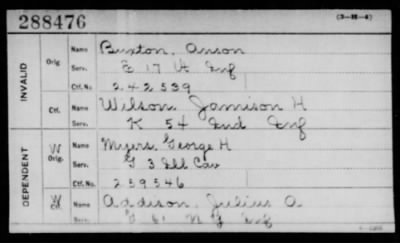 288476
(3-H-4)
INVALID
Orig.
Name Buxton, Anson
Serv. E 17 Vt Inf
Ctf. No. 242539
Ctf.
Name Wilson Jamison H
Serv. K 54 Ind Inf
DEPENDENT
W Orig.
Name Myers, George H
Serv. G 3 Ill Cav
Ctf. No. 259546
W Ctf.
Name Addison, Julius A
Serv. 61 N Y Inf